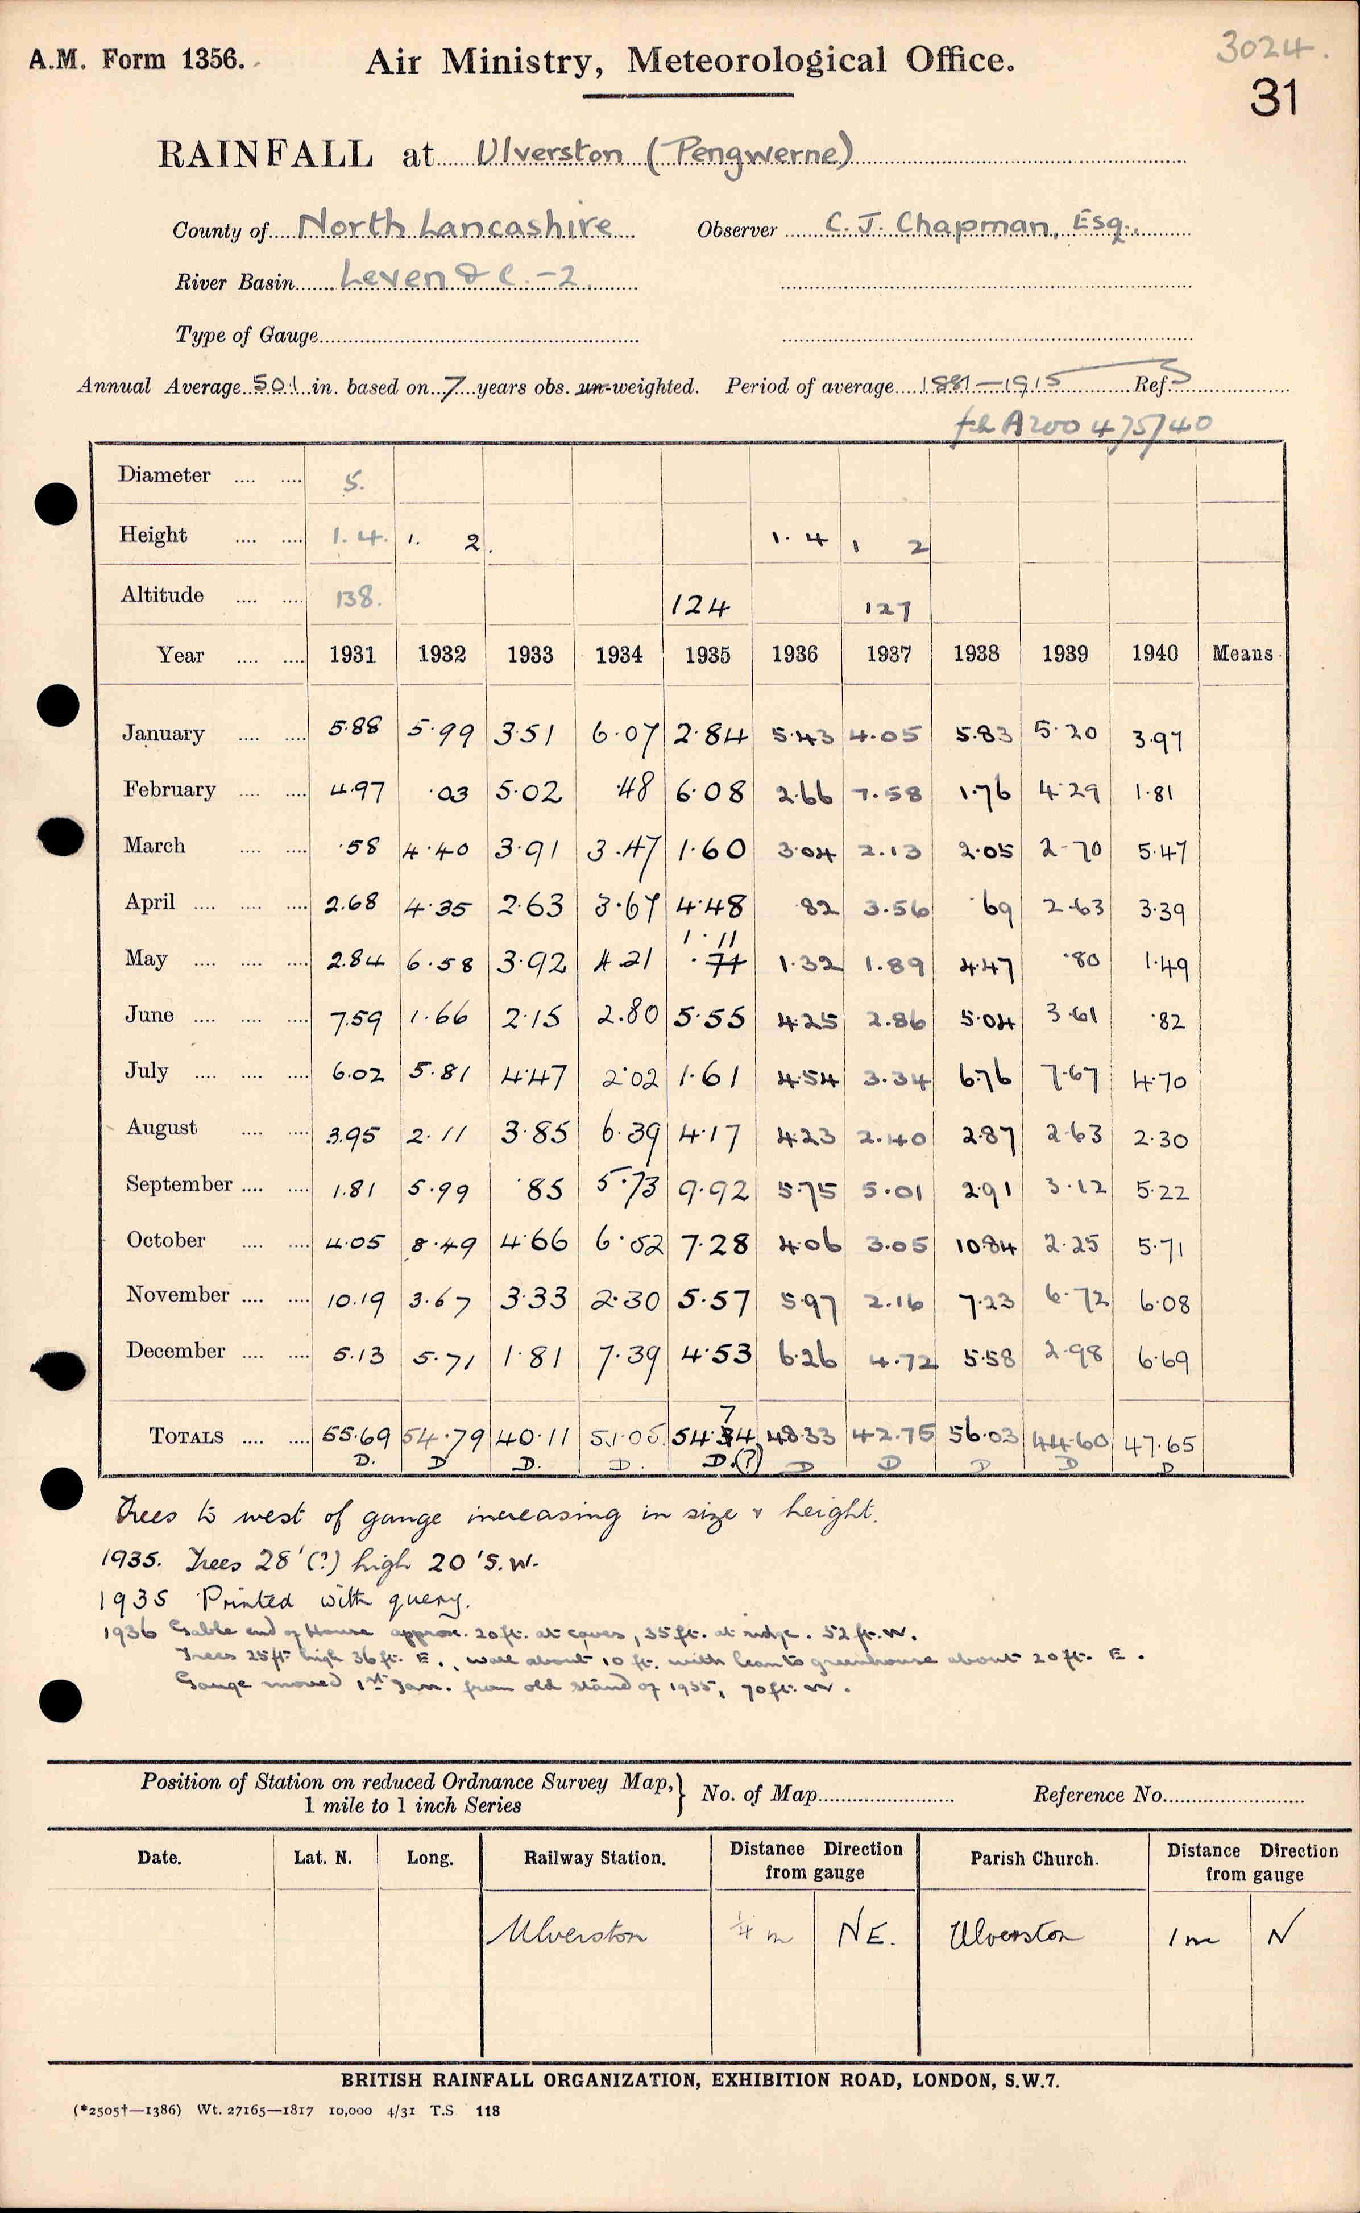 3024.
A.M. Form 1356.
Air Ministry, Meteorological Office.
31
RAINFALL at Ulverston (Pengwerne)
County of North Lancashire Observer C. J. Chapman, Esq.
River Basin Leven & C. - 2.
Type of Gauge
Annual Average 50.1 in. based on 7 years obs. un-weighted. Period of average 1881-1915 Ref.
475/40
Diameter 5.
Height 1. 4. 1. 2. 1. 4 1 2
Altitude 138. 124 127
Year 1931 1932 1933 1934 1935 1936 1937 1938 1939 1940 Means
January 5.88 5.99 3.51 6.07 2.84 5.43 4.05 5.83 5.20 3.97
February 4.97 .03 5.02 .48 6.08 2.66 7.58 1.76 4.29 1.81
March .58 4.40 3.91 3.47 1.60 3.04 2.13 2.05 2.70 5.47
April 2.68 4.35 2.63 3.67 4.48 .82 3.56 .69 2.63 3.39
1.11
May 2.84 6.58 3.92 4.21 .71 1.32 1.89 4.47 .80 1.49
June 7.59 1.66 2.15 2.80 5.55 4.25 2.86 5.04 3.61 .82
July 6.02 5.81 4.47 2.02 1.61 4.54 3.34 6.76 7.67 4.70
August 3.95 2.11 3.85 6.39 4.17 4.23 2.40 2.87 2.63 2.30
September 1.81 5.99 .85 5.73 9.92 5.75 5.01 2.91 3.12 5.22
October 4.05 8.49 4.66 6.52 7.28 4.06 3.05 10.84 2.25 5.71
November 10.19 3.67 3.33 2.30 5.57 5.97 2.16 7.23 6.72 6.08
December 5.13 5.71 1.81 7.39 4.53 6.26 4.72 5.58 2.98 6.69
7
TOTALS 55.69 54.79 40.11 51.05 54.34 48.33 42.75 56.03 44.60 47.65
D. D D. D. D.(?) D D D D D
Trees to west of gauge increasing in size & height.
1935. Trees 28'(?) high 20'S.W.
1935 Printed with query.
1936 Gable end of House approx. 20ft. at eaves, 35ft. at ridge. 52ft. W.
Trees 25ft high 36ft. E., wall about 10 ft. with leanto greenhouse about 20ft. E.
Gauge moved 1st Jan. from old stand of 1935, 70ft. W.
Position of Station on reduced Ordnance Survey Map,} No. of Map Reference No.
1 mile to 1 inch Series
Date. Lat. N. Long. Railway Station. Distance Direction from gauge Parish Church. Distance Direction from gauge
Ulverston 1/4 m NE. Ulverston 1m N
BRITISH RAINFALL ORGANIZATION, EXHIBITION ROAD, LONDON, S.W.7.
(*2505†—1386) Wt. 27165—1817 10,000 4/31 T.S 118